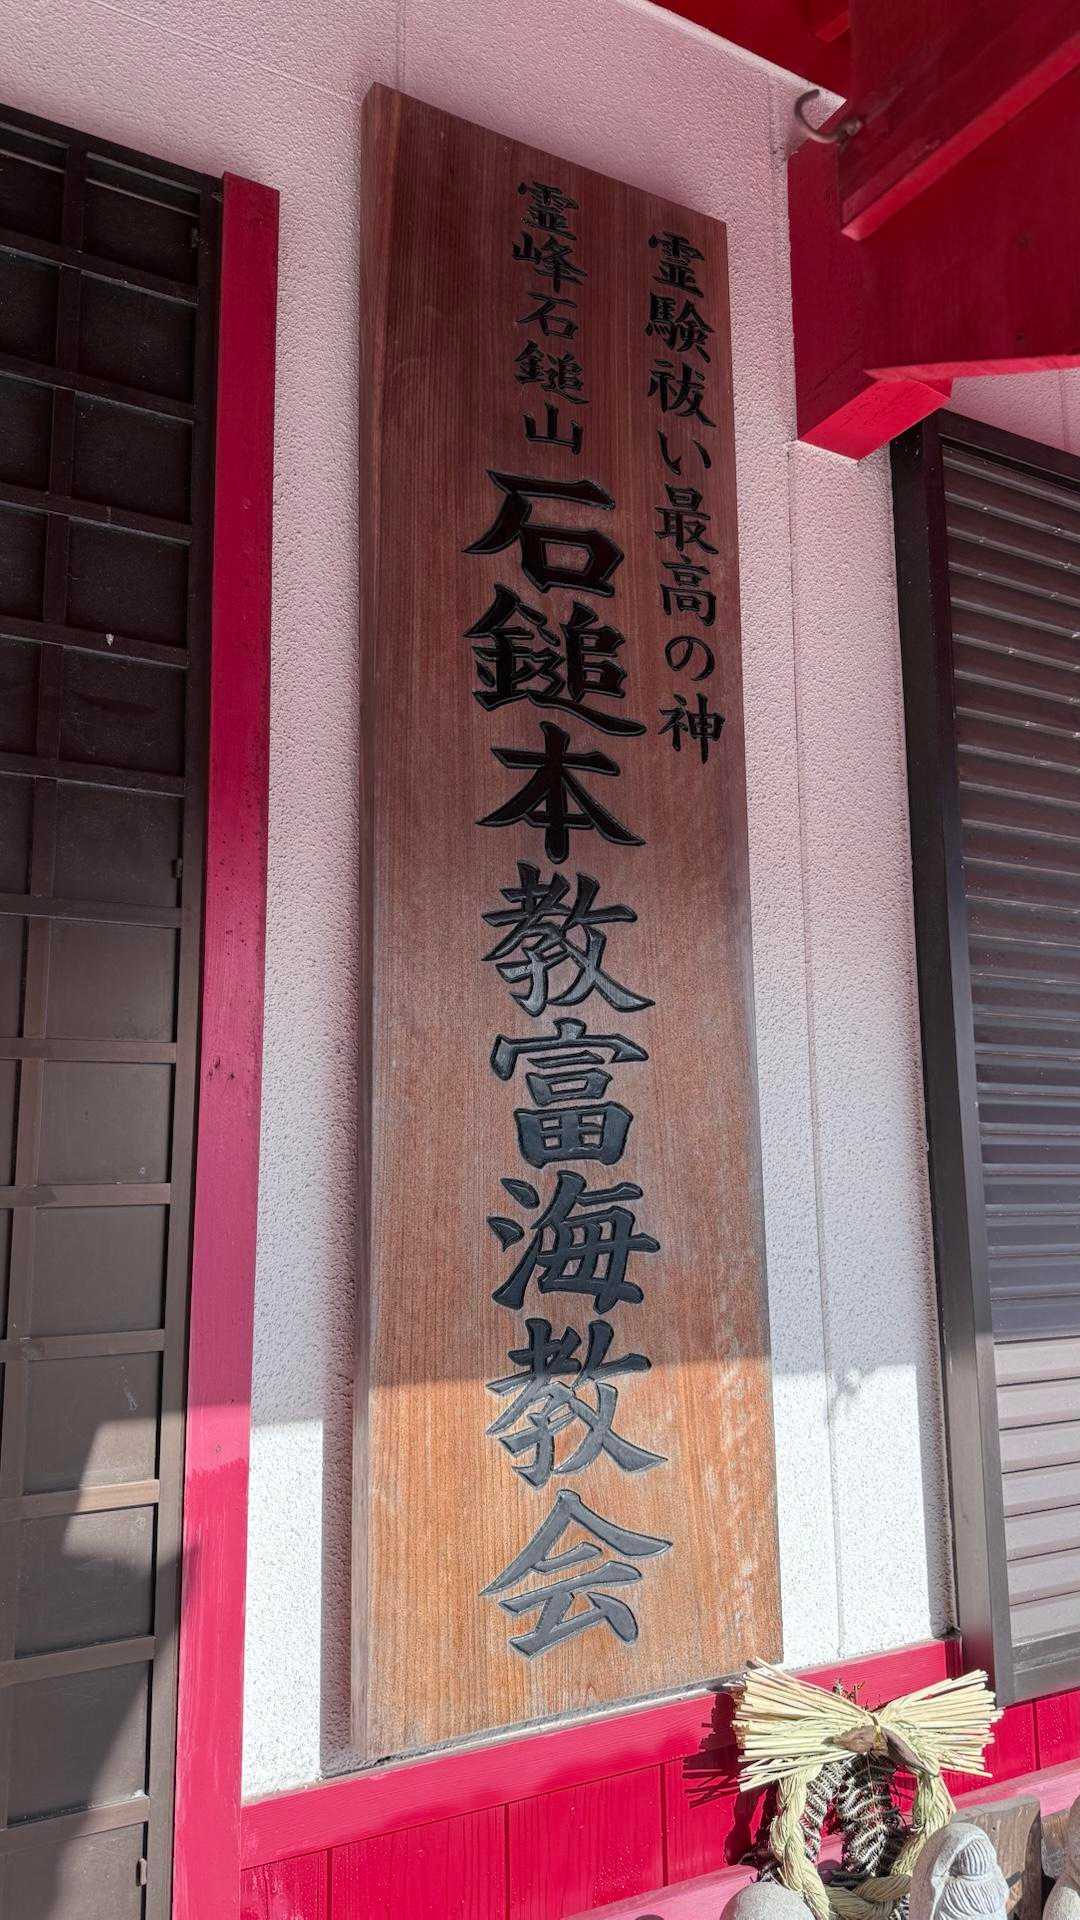 霊験祓い最高の神
霊峰石鎚山 石鎚本教富海教会